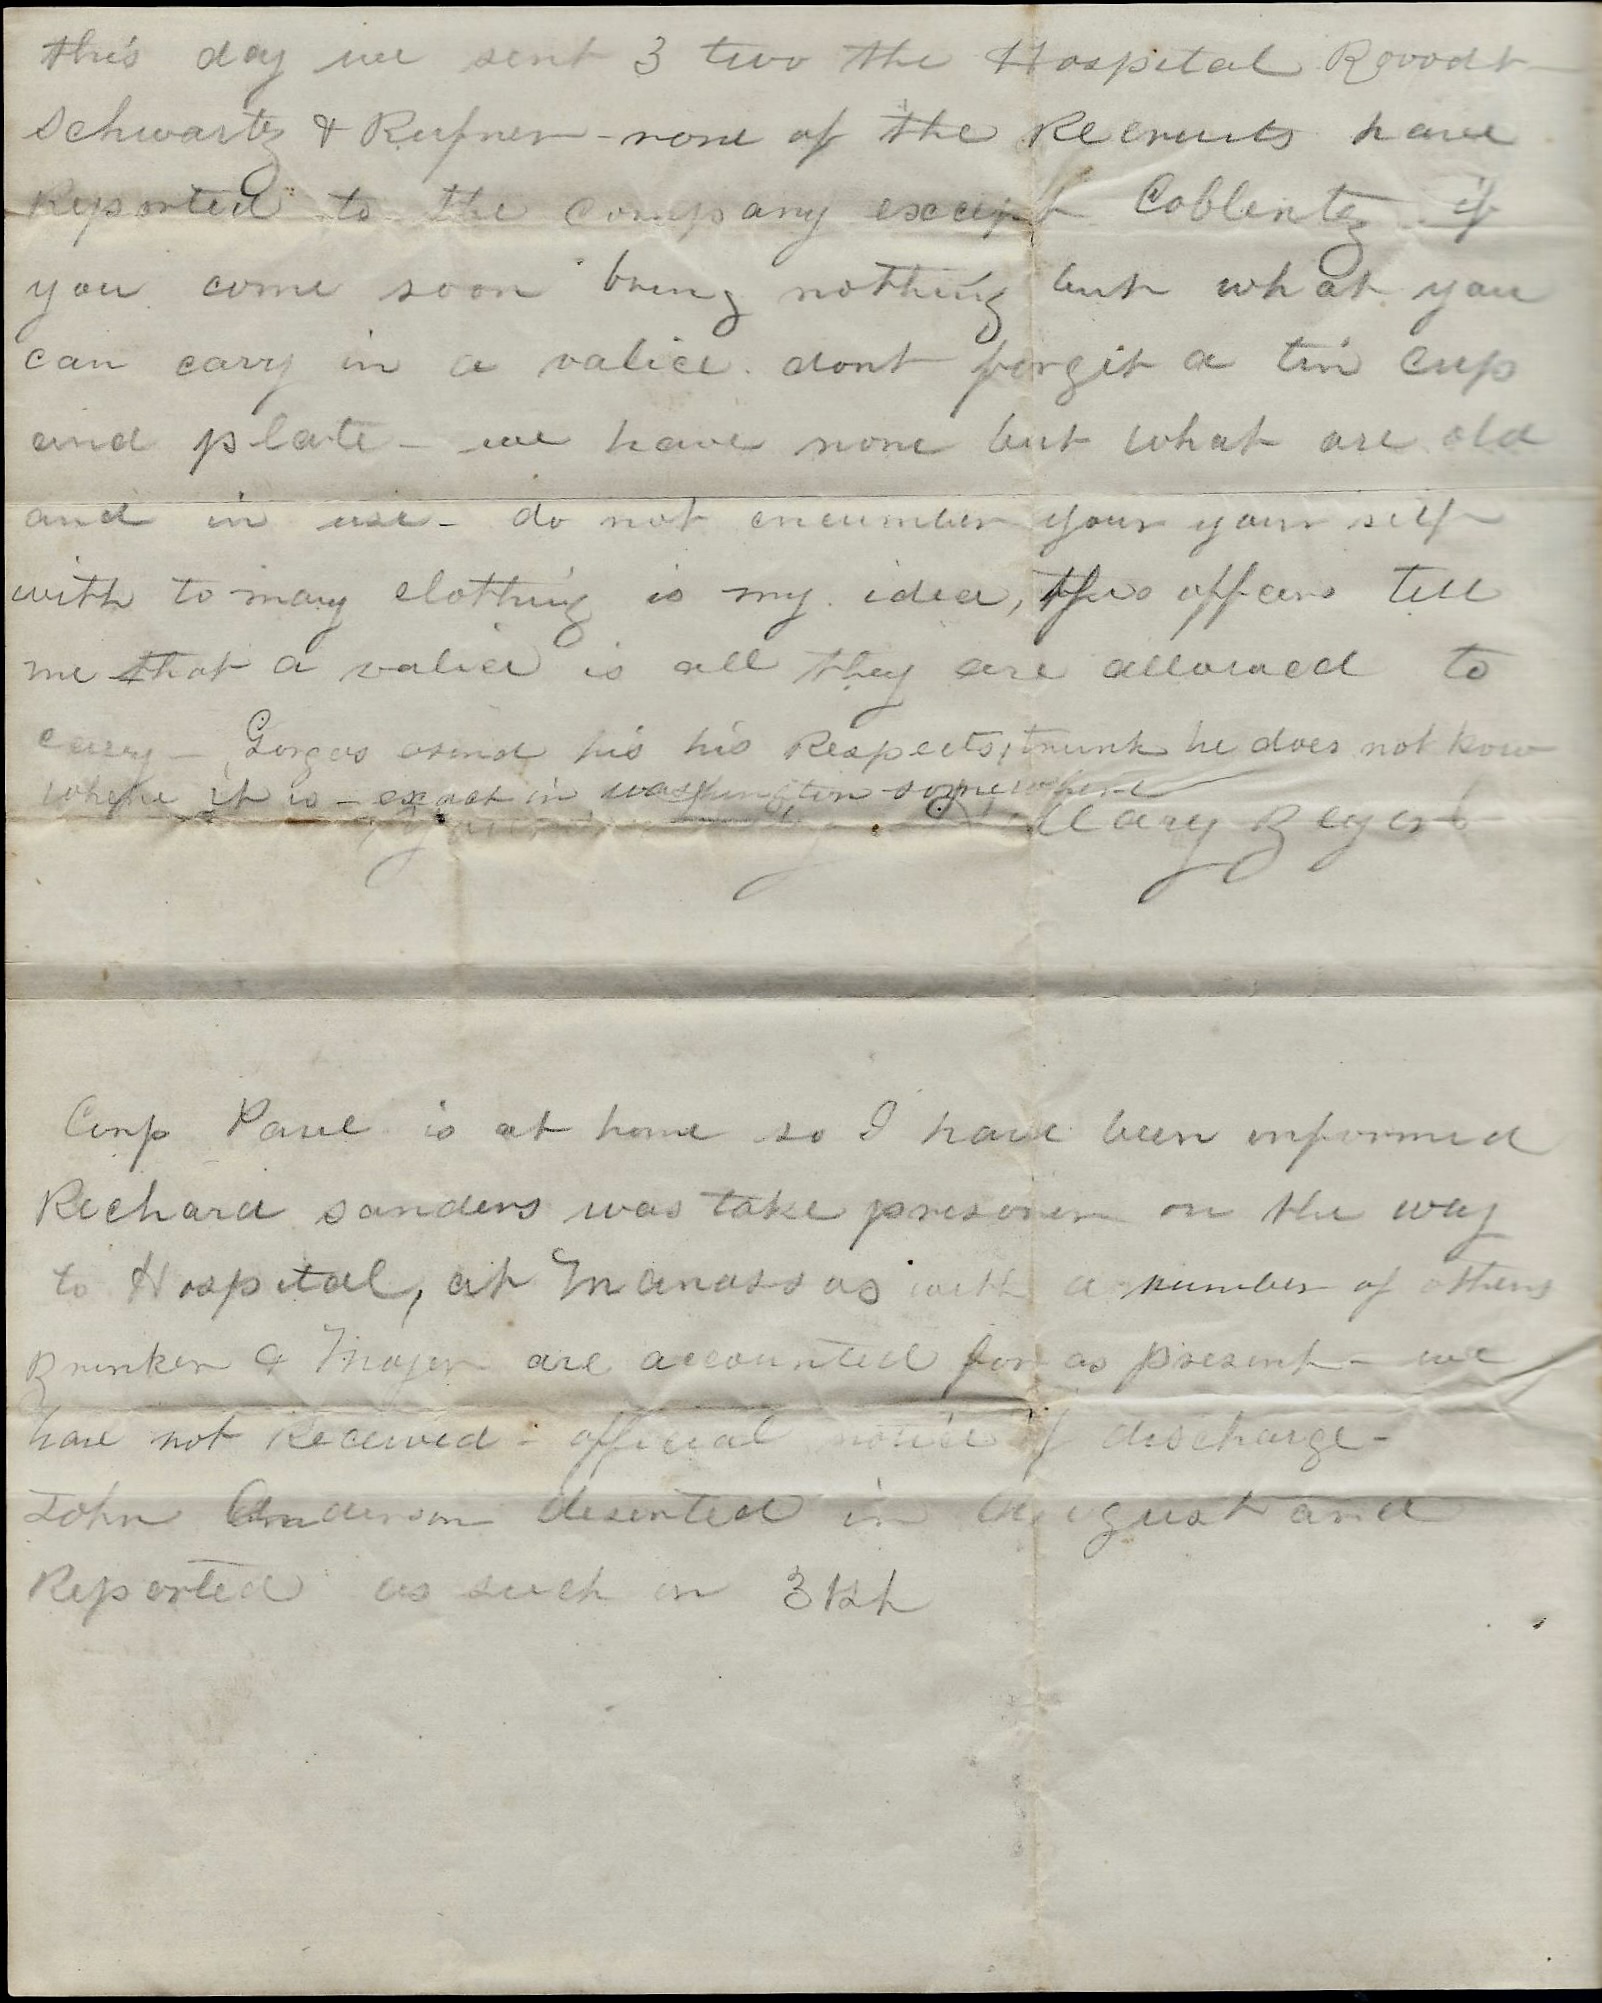 this day we sent 3 two the Hospital
Schwartz & Rufner - none of the Recruits have
Reported to the company except Coblentz if
you come soon bring nothing but what you
can cary in a valice. dont forgit a tin Cup
and plate - we have none but what are old
and in use - do not encumber your your self
with to many clothing is my idea, the officers tell
me that a valice is all they are allowed to
cary - Gorgas send his his Respects, trunk he does not know
where it is - in washington somewhere
Beyer
Corp Paul is at home so I have been informed
Richard Sanders was take prisoner on the way
to Hospital, at Manassas with a number of others
Brinker & Moyer are accounted for as present - we
have not Received - official notice of discharge -
John Anderson deserted in August and
Reported as such on 31st